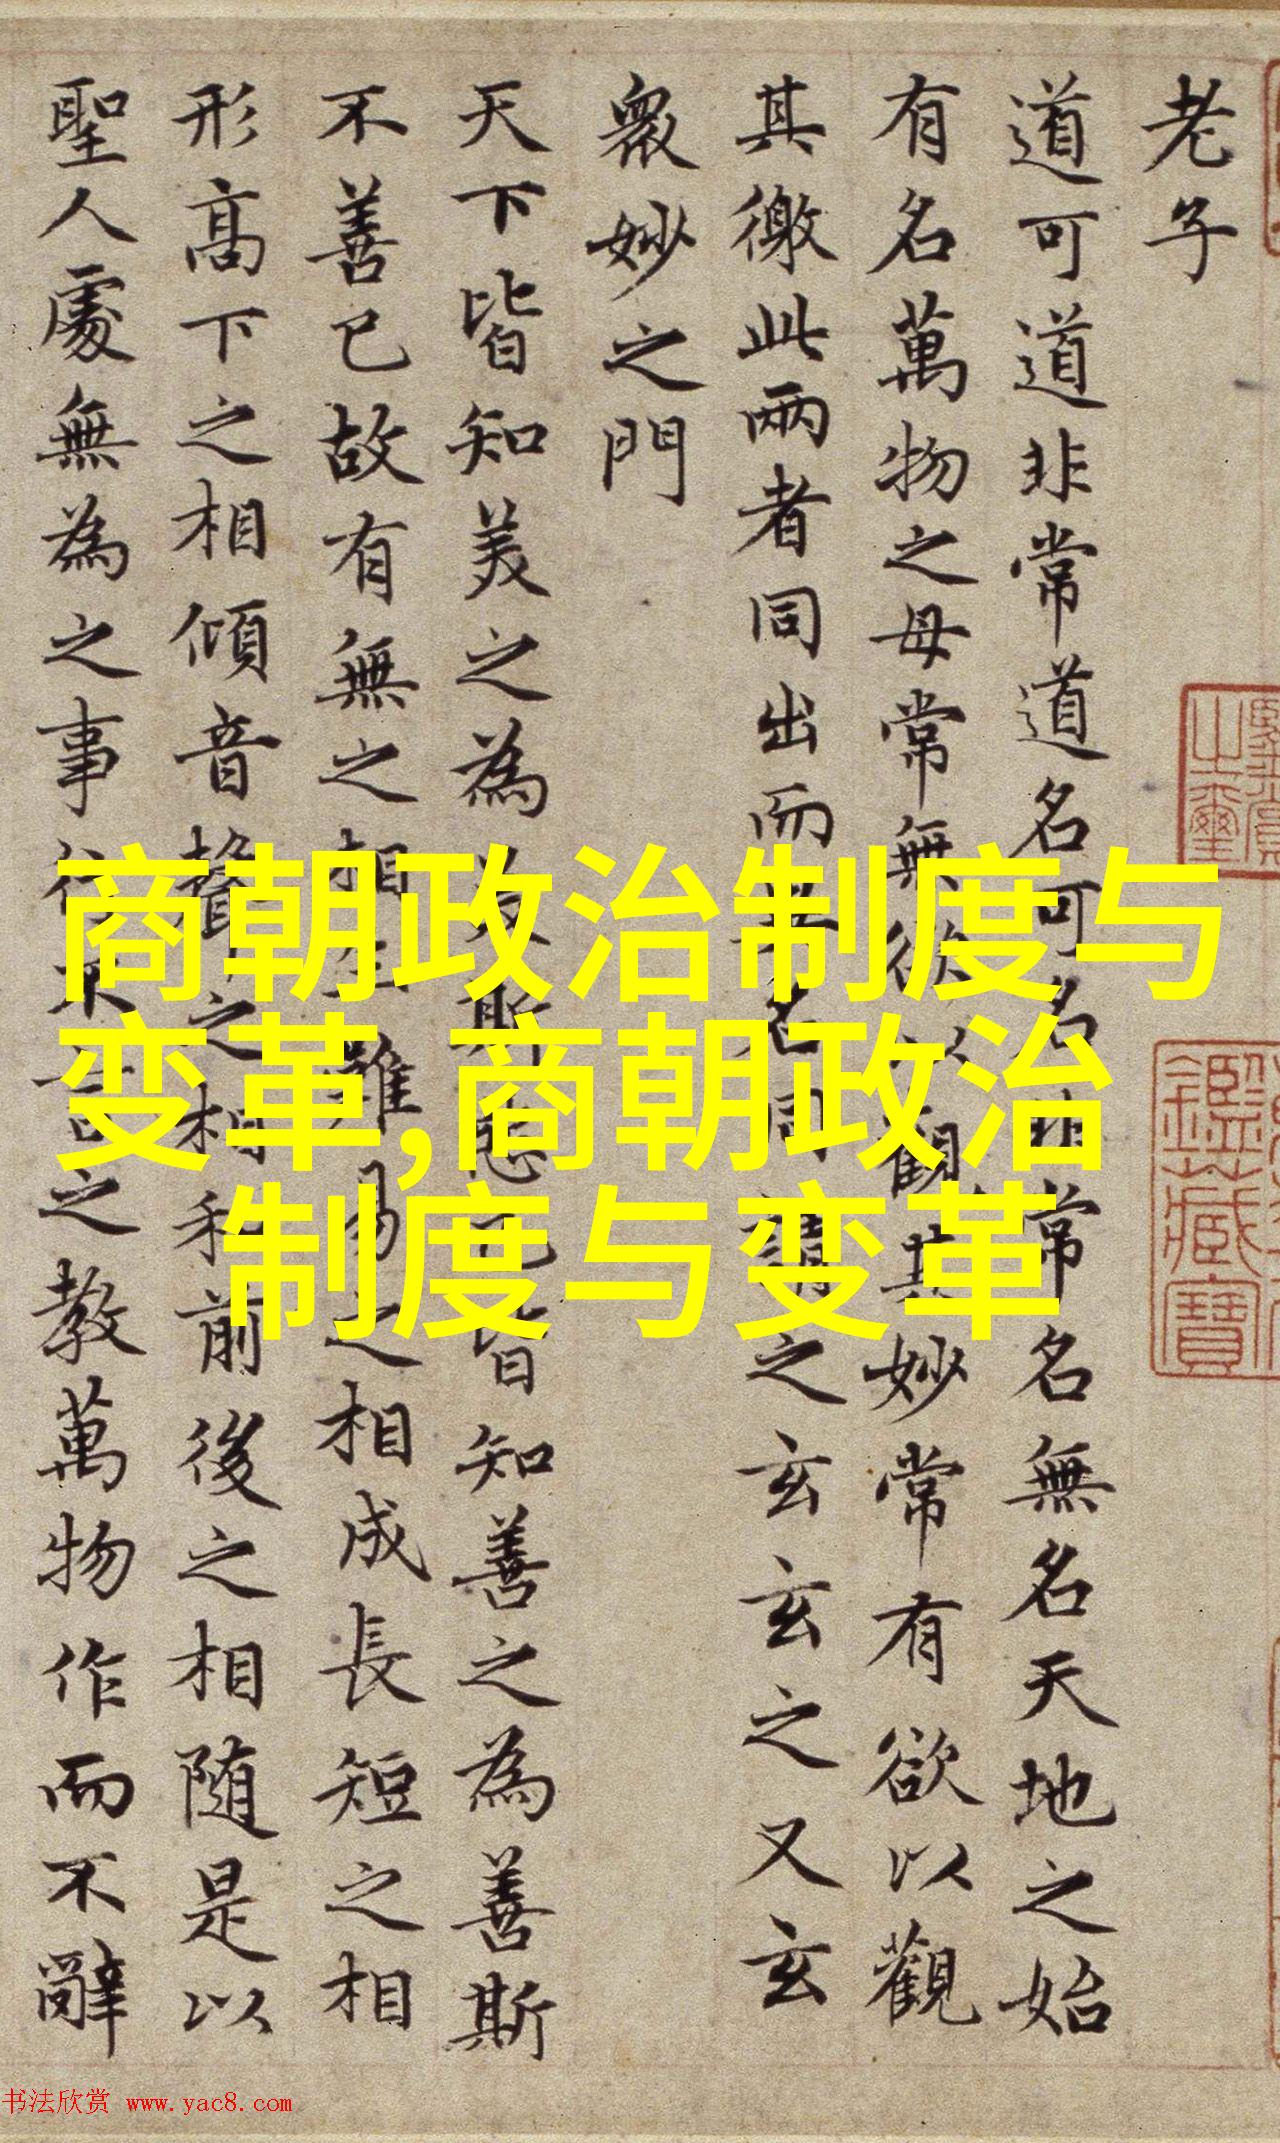 老子
道可道非常道名可名非常名無名天地之始
有名萬物之母常無欲以觀其妙常有欲以觀
其徼此兩者同出而異名同謂之玄玄之又玄
衆妙之門
天下皆知美之為美斯惡已皆知善之為善斯
不善已故有無之相生難易之相成長短之相
形高下之相傾音聲之相和前後之相随是以
聖人處無為之事行不言之教萬物作而不辭
商朝政治制度与
变革,商朝政治
制度与变革
书法欣赏 www.yac8.com